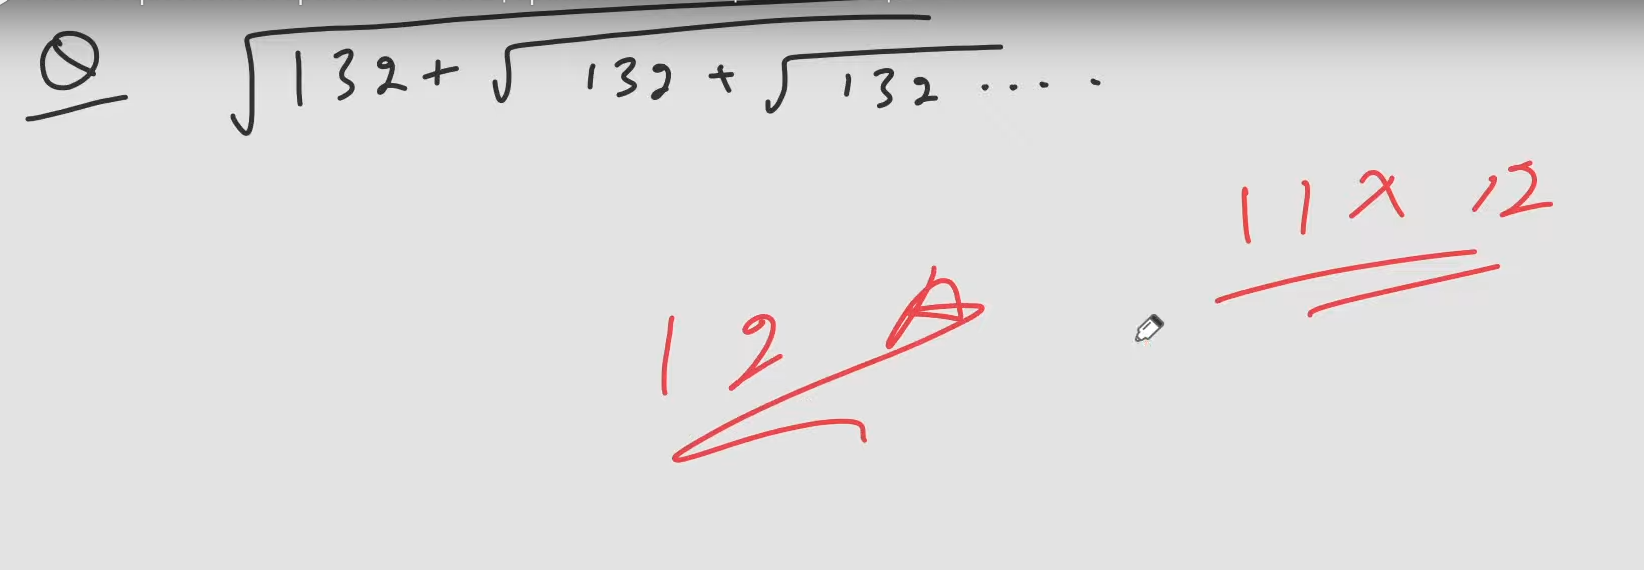 Q √132 + √132 + √132 .....
11 x 12
12 A